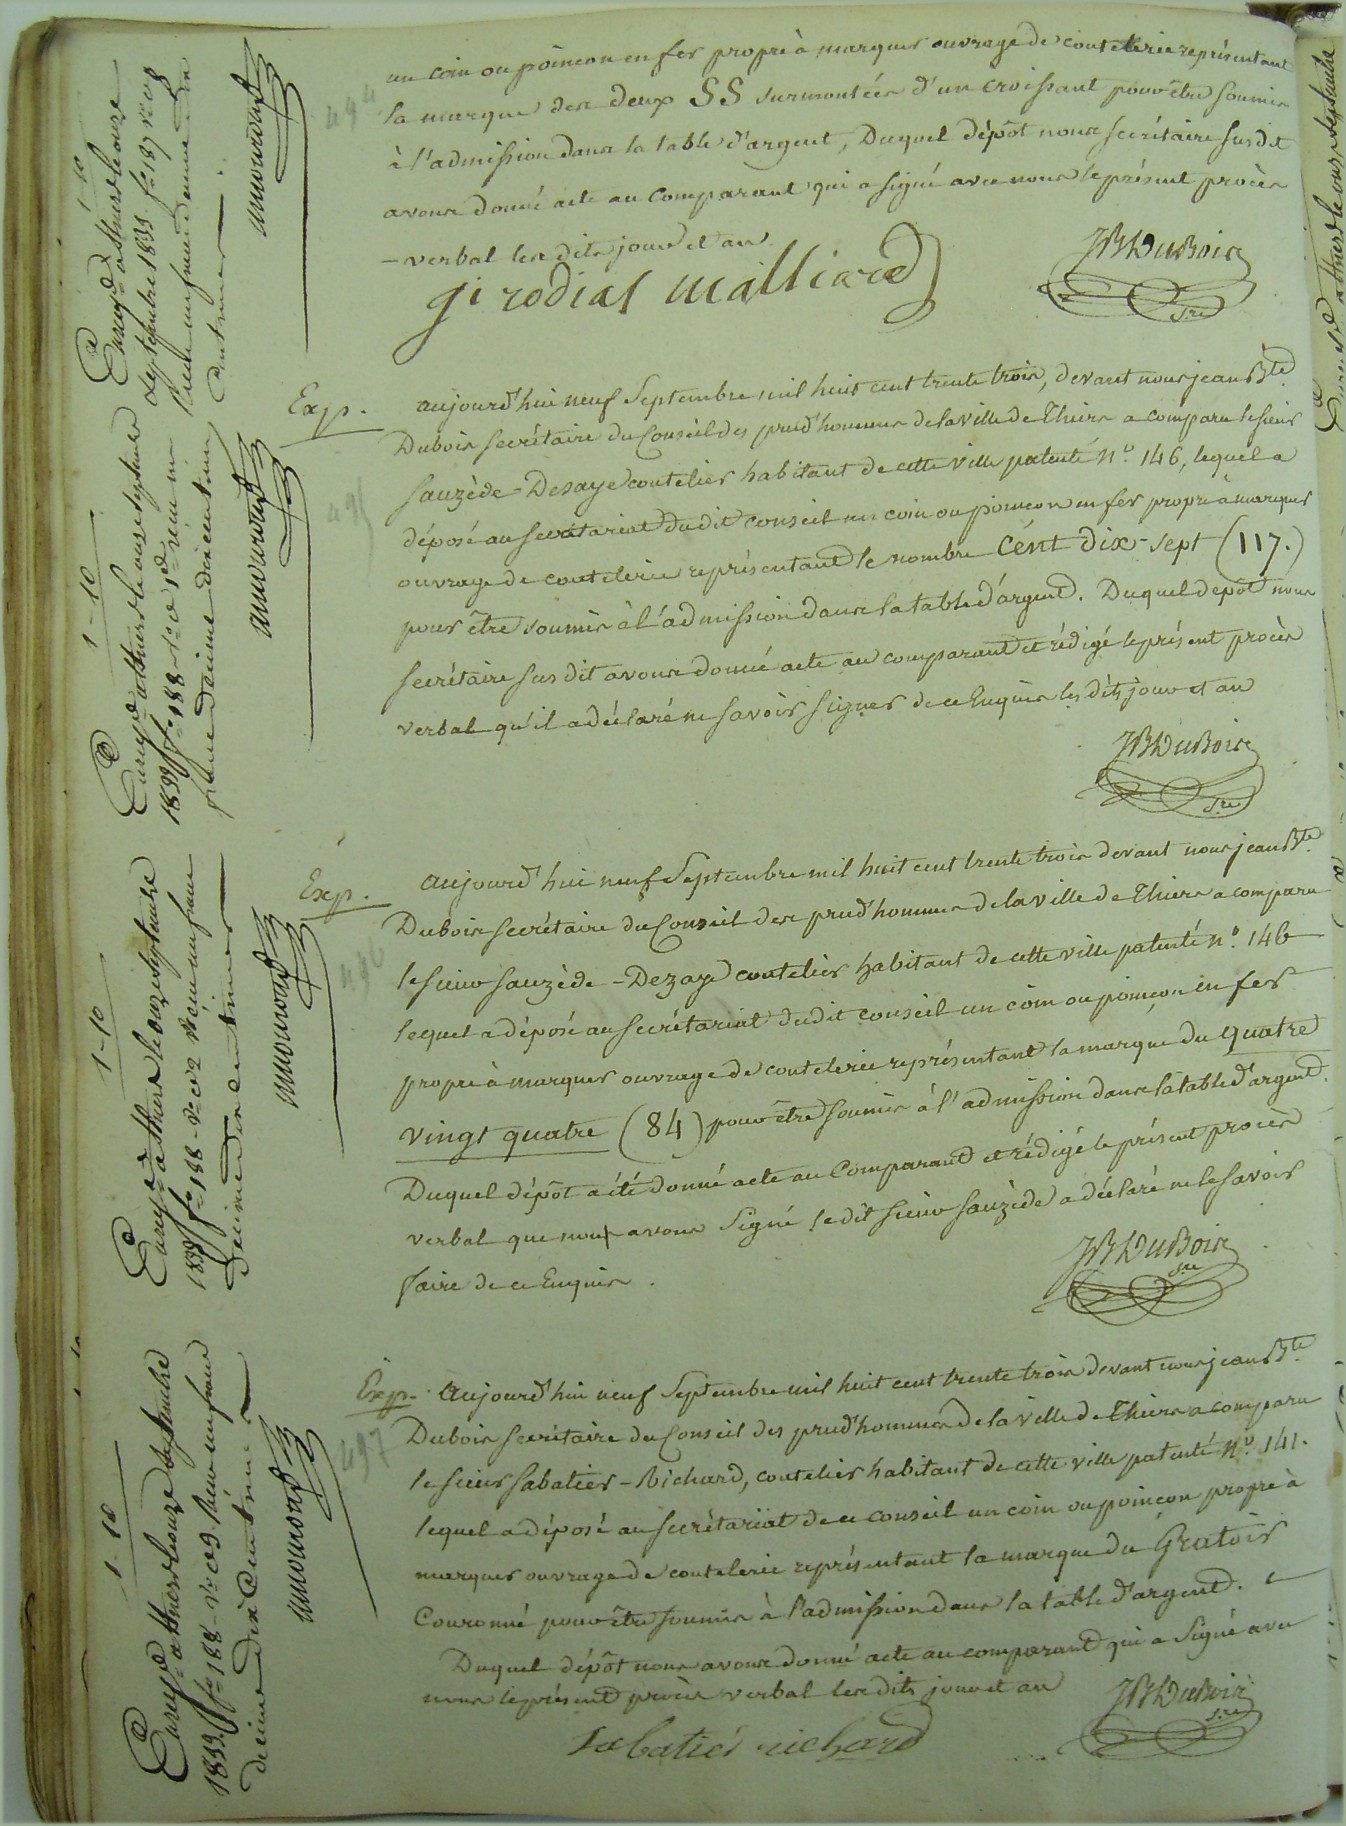 un coin ou poinçon en fer propre à marquer ouvrage de coutelerie représentant
la marque des deux SS surmontées d'un croissant pour être soumis
à l'admission dans la table d'argent, Duquel dépôt nous secrétaire susdit
avons donné acte au comparant qui a signé avec nous le présent procès
-verbal les dits jour et an
girodias malliard
JB DuBois
S.re
494
Exp. aujourd'hui neuf Septembre mil huit cent trente trois, devant nous jean B.te
Dubois secrétaire du Conseil des prud'hommes de la ville de Thiers a comparu le sieur
Sauzède-Dezaye coutelier habitant de cette ville patenté n.° 146, lequel a
déposé au secrétariat dudit conseil un coin ou poinçon en fer propre à marquer
ouvrage de coutelerie représentant le nombre Cent Dix-Sept (117.)
pour être soumis à l'admission dans la table d'argent. Duquel dépôt nous
secrétaire susdit avons donné acte au comparant et rédigé le présent procès
verbal qu'il a déclaré ne savoir signer de ce Enquis les dits jour et an
JB DuBois
S.re
495
Exp. aujourd'hui neuf Septembre mil huit cent trente trois devant nous jean B.te
Dubois secrétaire du Conseil des prud'hommes de la ville de Thiers a comparu
le sieur Sauzède-Dezaye coutelier habitant de cette ville patenté n.° 146
lequel a déposé au secrétariat dudit conseil un coin ou poinçon en fer
propre à marquer ouvrage de coutelerie représentant la marque du quatre
vingt quatre (84) pour être soumis à l'admission dans la table d'argent.
Duquel dépôt a été donné acte au Comparant et rédigé le présent procès
verbal que nous avons Signé le dit sieur Sauzède a déclaré ne le savoir
faire de ce Enquis.
JB DuBois
S.re
496
Exp. Aujourd'hui neuf Septembre mil huit cent trente trois devant nous jean B.te
Dubois secrétaire du Conseil des prud'hommes de la ville de Thiers a comparu
le sieur Sabatier-Richard, coutelier habitant de cette ville patenté n.° 141.
lequel a déposé au secrétariat de ce conseil un coin ou poinçon propre à
marquer ouvrage de coutelerie représentant la marque du Gratoir
Couronné pour être soumis à l'admission dans la table d'argent.
Duquel dépôt nous avons donné acte au comparant qui a signé avec
nous le présent procès verbal les dits jour et an
Sabatier richard
JB DuBois
S.re
497
1-10
Enregé à thiers le onze
septembre 1833 f° 187
1-10
Enregé à thiers le onze septembre
1833 f° 188
franc decime dix centimes
1-10
Enregé à thiers le onze septembre
1833 f° 188 - v° c° 2 Reçu un franc
decime dix centimes
1-10
Enregé à thiers le onze septembre
1833 f° 188 - Reçu un franc
decime dix centimes